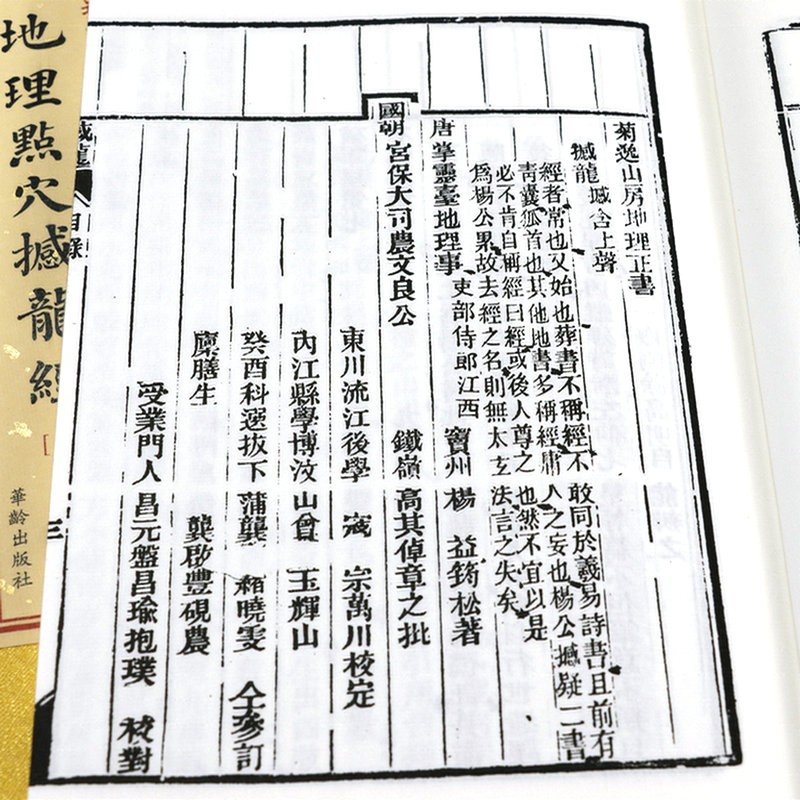 菊逸山房地理正書
撼龍撼含上聲
經者常也又始也葬書不稱經不敢同於羲易詩書且前有
青囊狐首也其他地書多稱經庸人之妄也楊公撼疑二書
必不肯自稱經曰經或後人尊之也然不宜以是
爲楊公累故去經之名則無太玄法言之失矣
唐掌靈臺地理事吏部侍郎江西竇州楊益筠松著
國朝宮保大司農文良公鐵嶺高其倬章之批
東川流江後學寇宗萬川校定
內江縣學博汶山曾玉輝山
癸酉科選拔下蒲龔緗曉雯仝參訂
廩膳生龔啟豐硯農
受業門人昌元盤昌瑜抱璞校對
撼龍
目錄
三
地理點穴撼龍經
華齡出版社